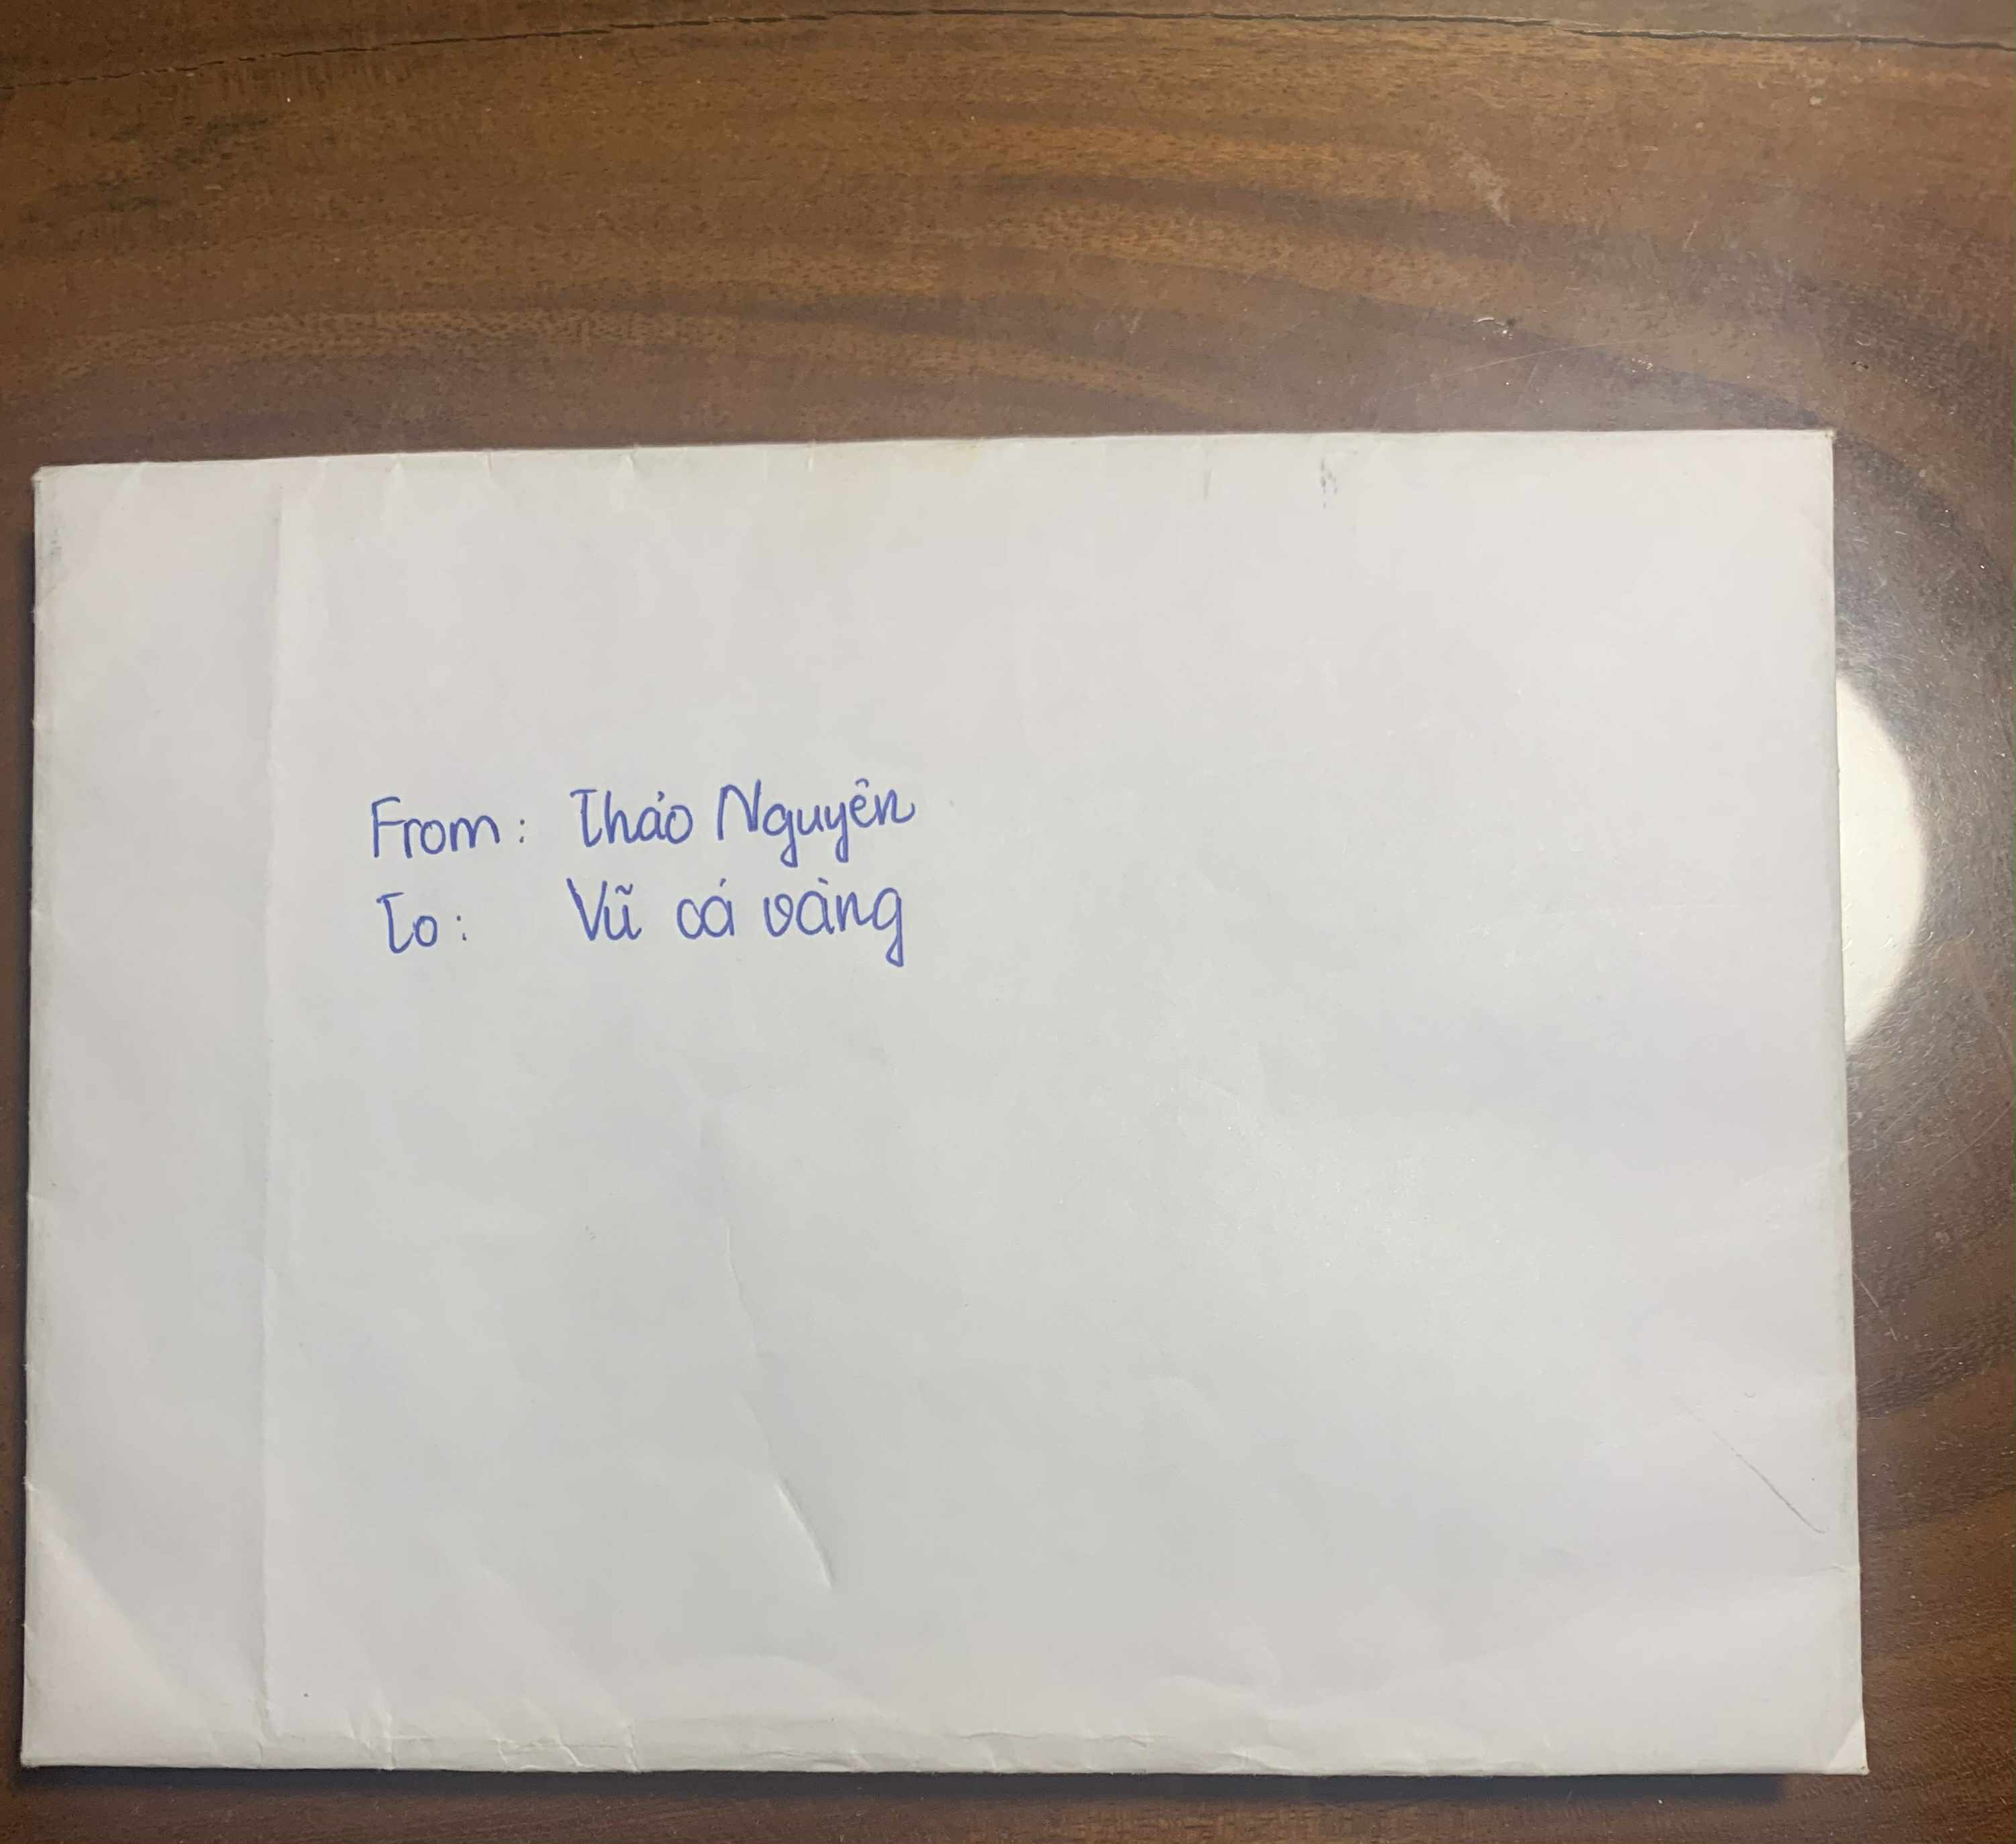 From: Thảo Nguyên
To: Vũ cá vàng